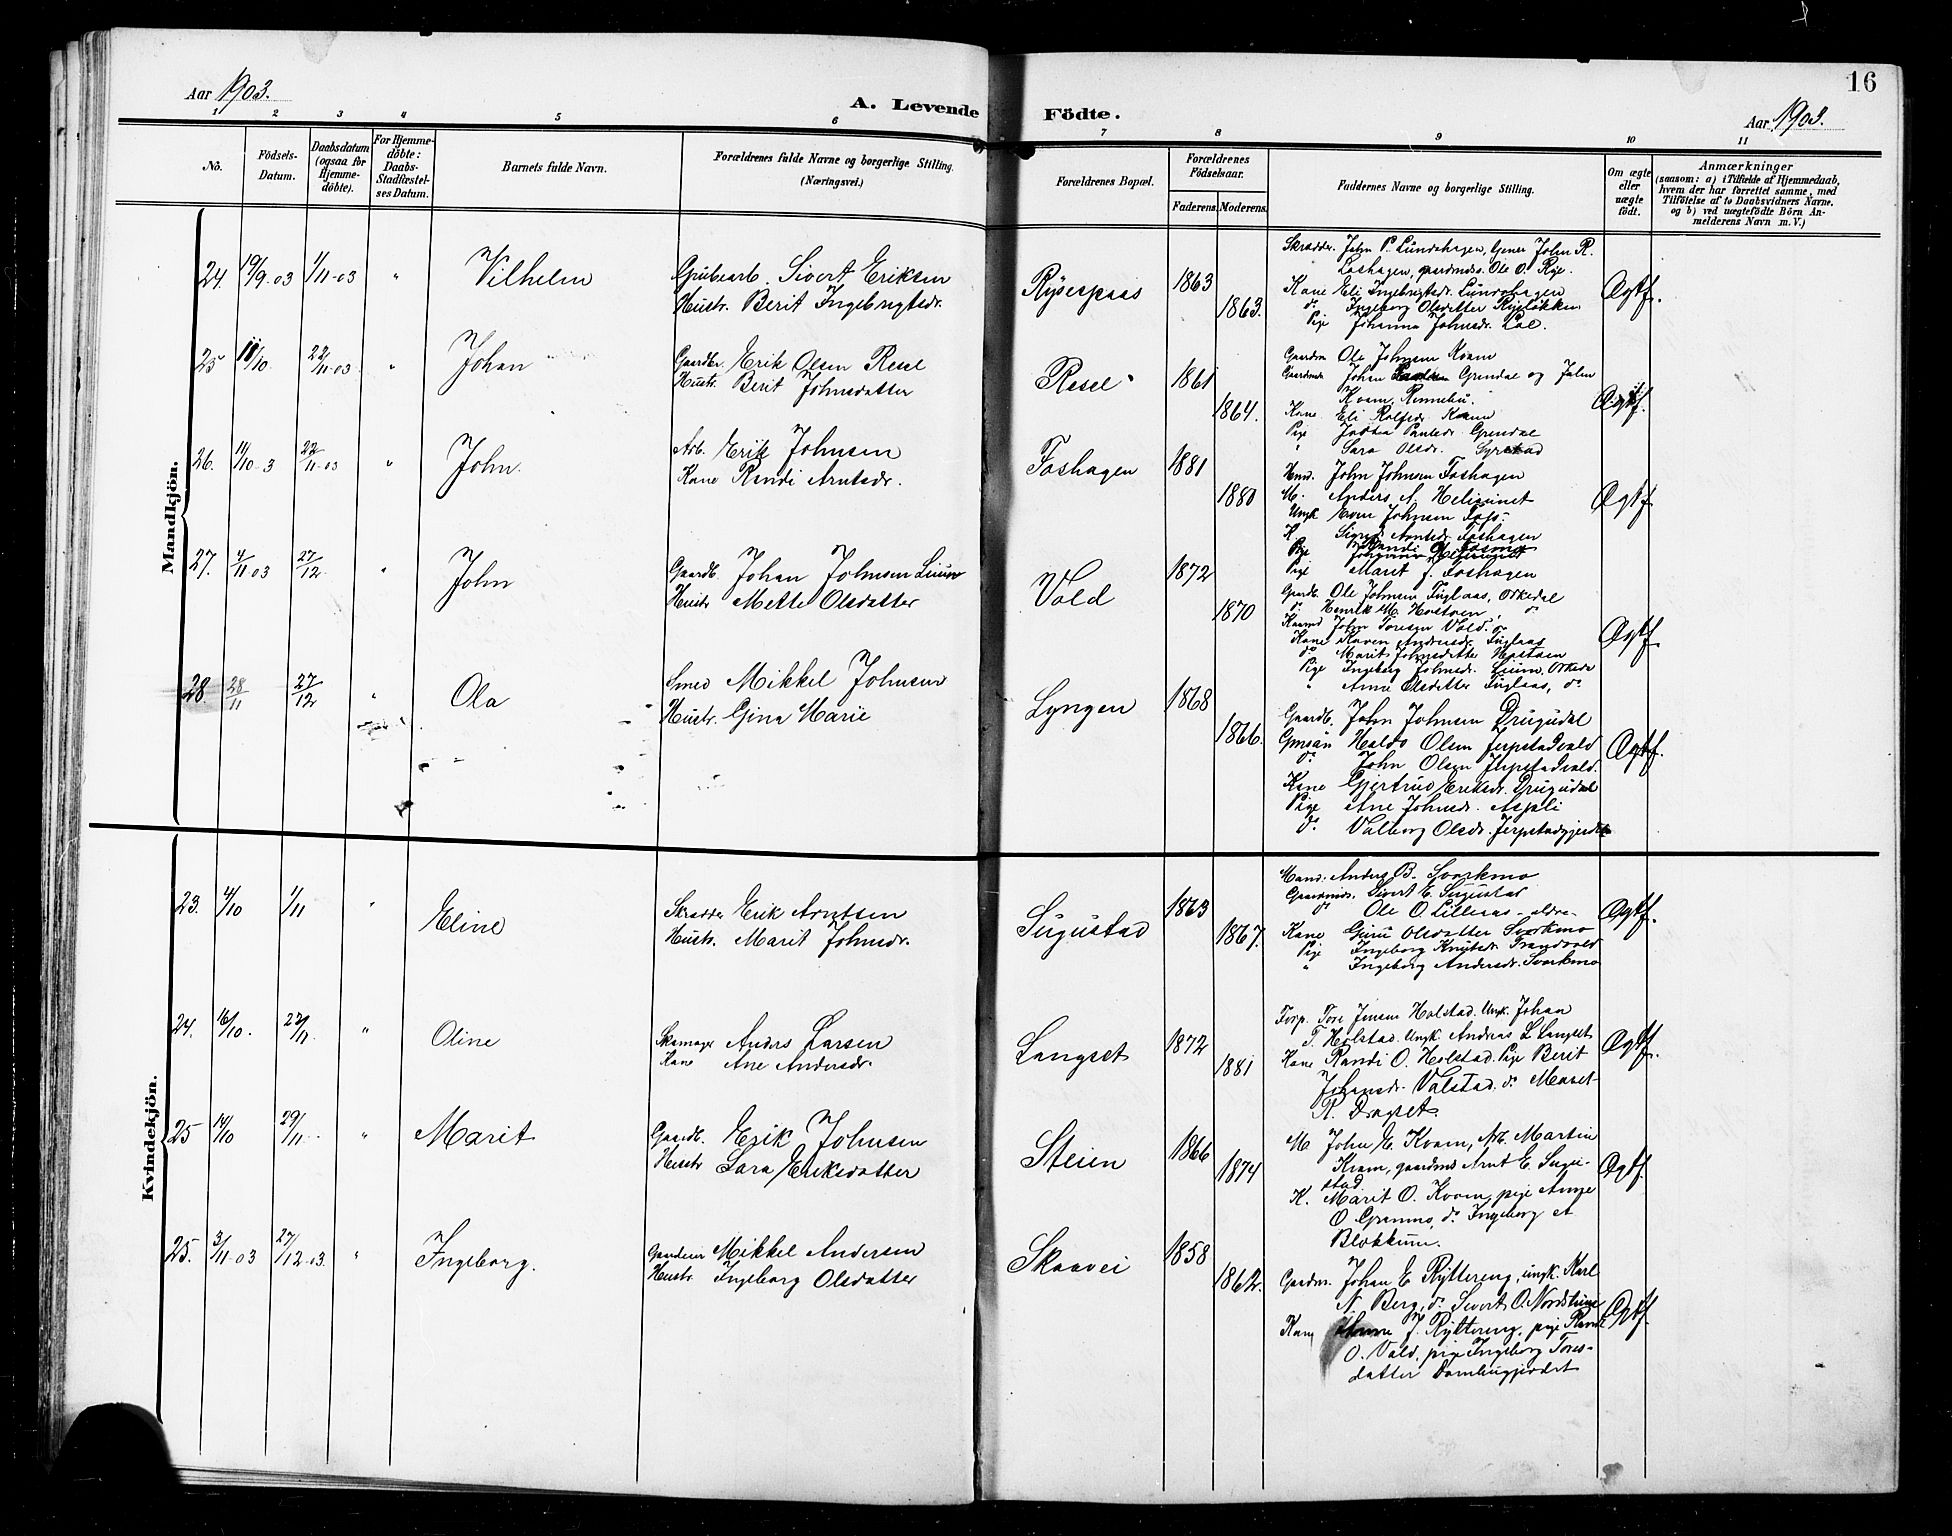 16
Aar 1903.
A. Levende Födte.
Aar 1903.
1 2 3 4 5 6 7 8 9 10 11
No.
Födsels-Datum.
Daabsdatum (ogsaa for Hjemme-döbte).
For Hjemme-döbte: Daabs-Stadfæstel-ses Datum.
Barnets fulde Navn.
Forældrenes fulde Navne og borgerlige Stilling. (Næringsvei.)
Forældrenes Bopæl.
Forældrenes Födselsaar.
Faderens. Moderens.
Faddernes Navne og borgerlige Stilling.
Om ægte eller uægte födt.
Anmærkninger
(saasom: a) i Tilfælde af Hjemmedaab, hvem der har forrettet samme, med Tilföielse af to Daabsvidners Navne. og b) ved uægtefödte Börn Anmelderens Navn m.V.)
Mandkjön.
24. 19/9 03 1/11-03 " Vilhelm
Grubearb. Sivert Eriksen
Hustr. Berit Ingebrigtsdr.
1863
1863.
Skrædder. John P. Lundshagen, John R.
gaardmds. Ole O. Rye.
Kone Eli Ingebrigtsdr. Lundshagen
do Ingeborg Olsdatter Ryeløkken
Pige Johanna Johnsdr. Loe.
Ægtf.
25 11/10. 22/11-03. " Johan
Gaardbr Erik Olsen Resel
Hustr. Berit Johnsdatter
Resel
1861
1864.
Gaardm Ole Johnsen Kvam
Gaardmds Johan Grendal og John
Kvam, Rennebu.
Kone Eli Rolfsdr. Kvam
Pige Grendal
" Sara Olsdr.
Ægtf.
26. 11/10-3 22/11-03 " John.
Arb. Erik Johnsen
Kone Randi Arntsdr.
Foshagen
1881
1880
John Johnsen Foshagen
M. Anders A.
Ungk Johnsen
K Sigrid Arntsdr. Foshagen
Pige
Pige Marit J. Foshagen
Ægtf
27. 4/11-03 27/12. " John
Gaardb. Johan Johnsen
Hustr Mette Olsdatter
Vold
1872
1870
Gaardb. Ole Johnsen Fuglaas, Orkedal
do Henrik M. Hostoen, do
John Toresen Vold. do
Kone Karen Andersdr. Fuglaas
do Marit Johnsdatter Hostoen
Pige Ingeborg Johnsdr.
" Anne Olsdatter Fuglaas, do
Ægtf.
28 28/11 27/12 " Ola
Smed Mikkel Johnsen
Hustr. Gina Marie
Lyngen
1868
1866.
Gaardb. John Johnsen Drugudal
Haldo Olsen Jerpstadvald
do John Olsen Jerpstadvald.
Kone Gjertrud Eriksdr. Drugudal
Pige Ane Johnsdr. Aspli
do Valborg Olsdr. Jerpstadgjerdet
Ægtf.
Kvindekjön.
23. 4/10 1/11 " Eline
Skrædder Erik Arntsen
Hustr. Marit Johnsdr.
Sugustad
1863
1867.
Mand. Anders B. Svorkmo
Gaardmds. Sivert E. Sugustad
do Ole O. Lilleaas - eldre-
Kone Guru Olsdatter Svorkmo
Pige Ingeborg Knutsdr.
" Ingeborg Andersdr. Svorkmo
Ægtf.
24. 16/10. 22/11. " Oline
Skomager Anders Larsen
Kone Ane Andersdr.
Langset
1872
1881
Forp. Tore Jensen Holstad. Ungk. Johan
T. Holstad. Ungk Andreas L Langset
Kone Randi O. Holstad. Pige Berit
Johansdr. Valstad. do Maret
R. Dragset.
Ægtf.
25 14/10 29/11. " Marit
Gaardb. Erik Johnsen
Hustr Sara Eriksdatter
Steien
1866
1874
M John E. Kvam, Arb. Martin
Kvam, gaardmds Arnt E. Sugu-
stad
K. Marit O. Kvam, pige Anne
O Granmo, do Ingeborg
Blokkum.
Ægtf.
25. 3/11-03 27/12-03. " Ingeborg.
Mikkel Andersen
Hustr. Ingeborg Olsdatter
Skaavei
1858
1862.
Gaardm. Johan E Ryttereng, ungk. Karl
N. Berg, do Sivert O. Nordstuen
Kone J. Ryttereng, pige Randi
O. Vold, pige Ingeborg Tores-
datter
Ægtf.